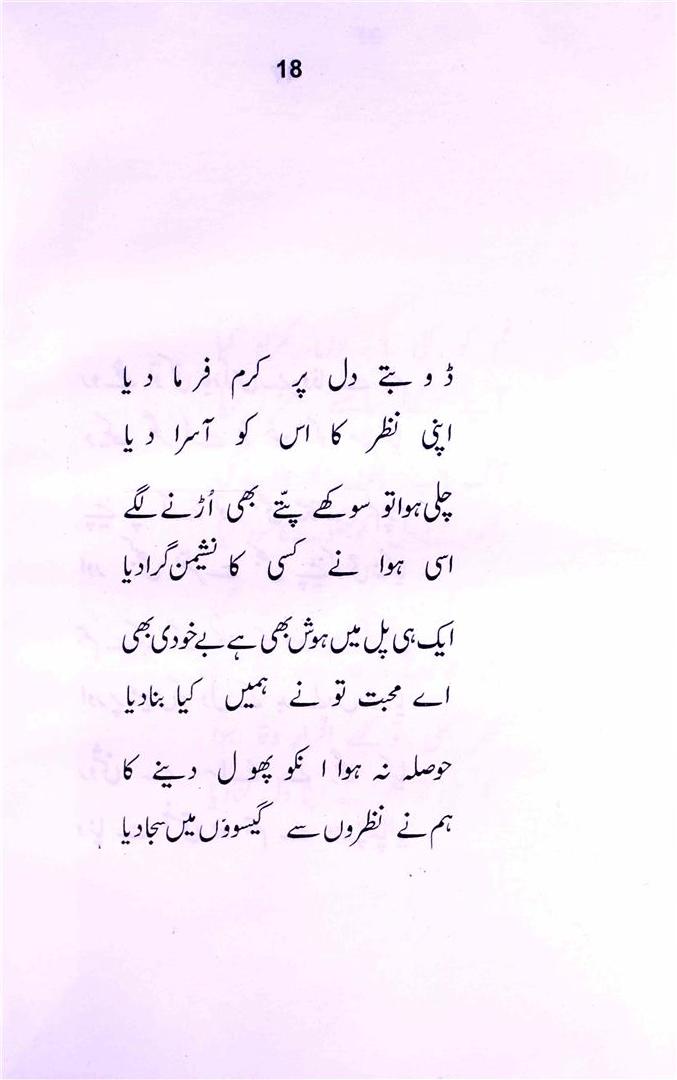 18
ڈوبتے دل پر کرم فرما دیا
اپنی نظر کا اس کو آسرا دیا
چلی ہوا تو سوکھے پتّے بھی اُڑنے لگے
اسی ہوا نے کسی کا نشیمن گرادیا
ایک ہی پل میں ہوش بھی ہے بے خودی بھی
اے محبت تو نے ہمیں کیا بنادیا
حوصلہ نہ ہوا انکو پھول دینے کا
ہم نے نظروں سے گیسوؤں میں سجادیا